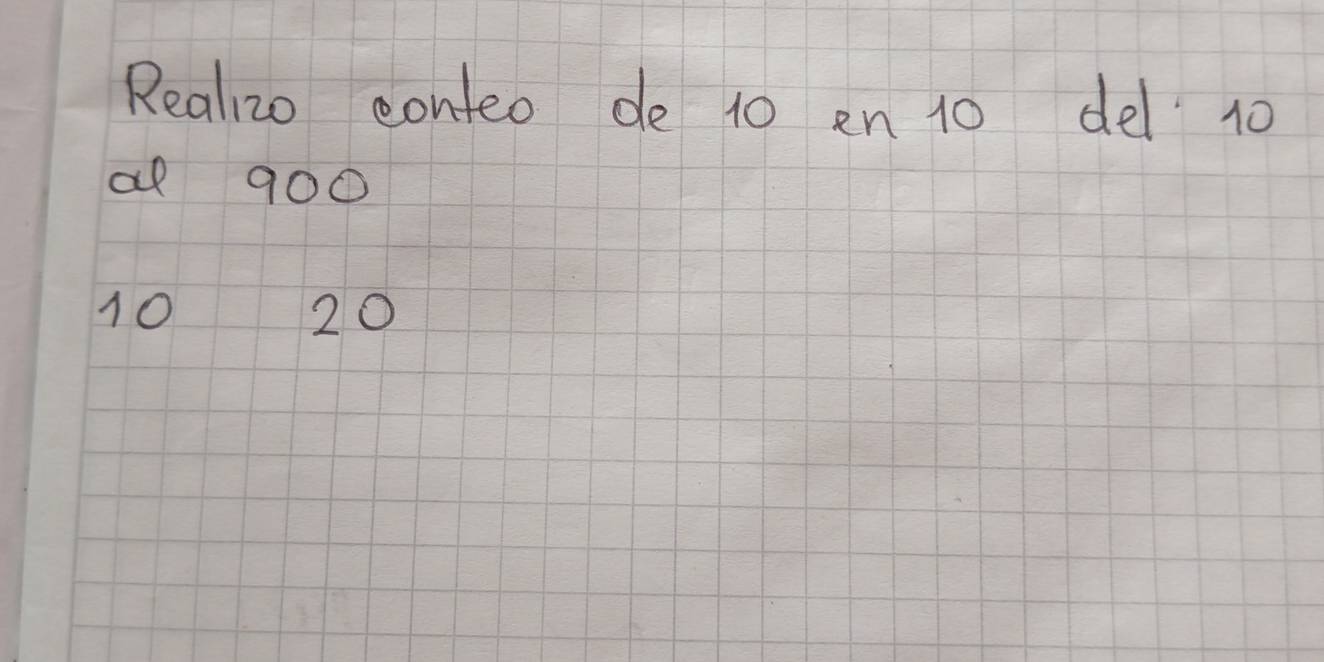 Realizo conteo de 10 en 10 del 10
al 900
10 20